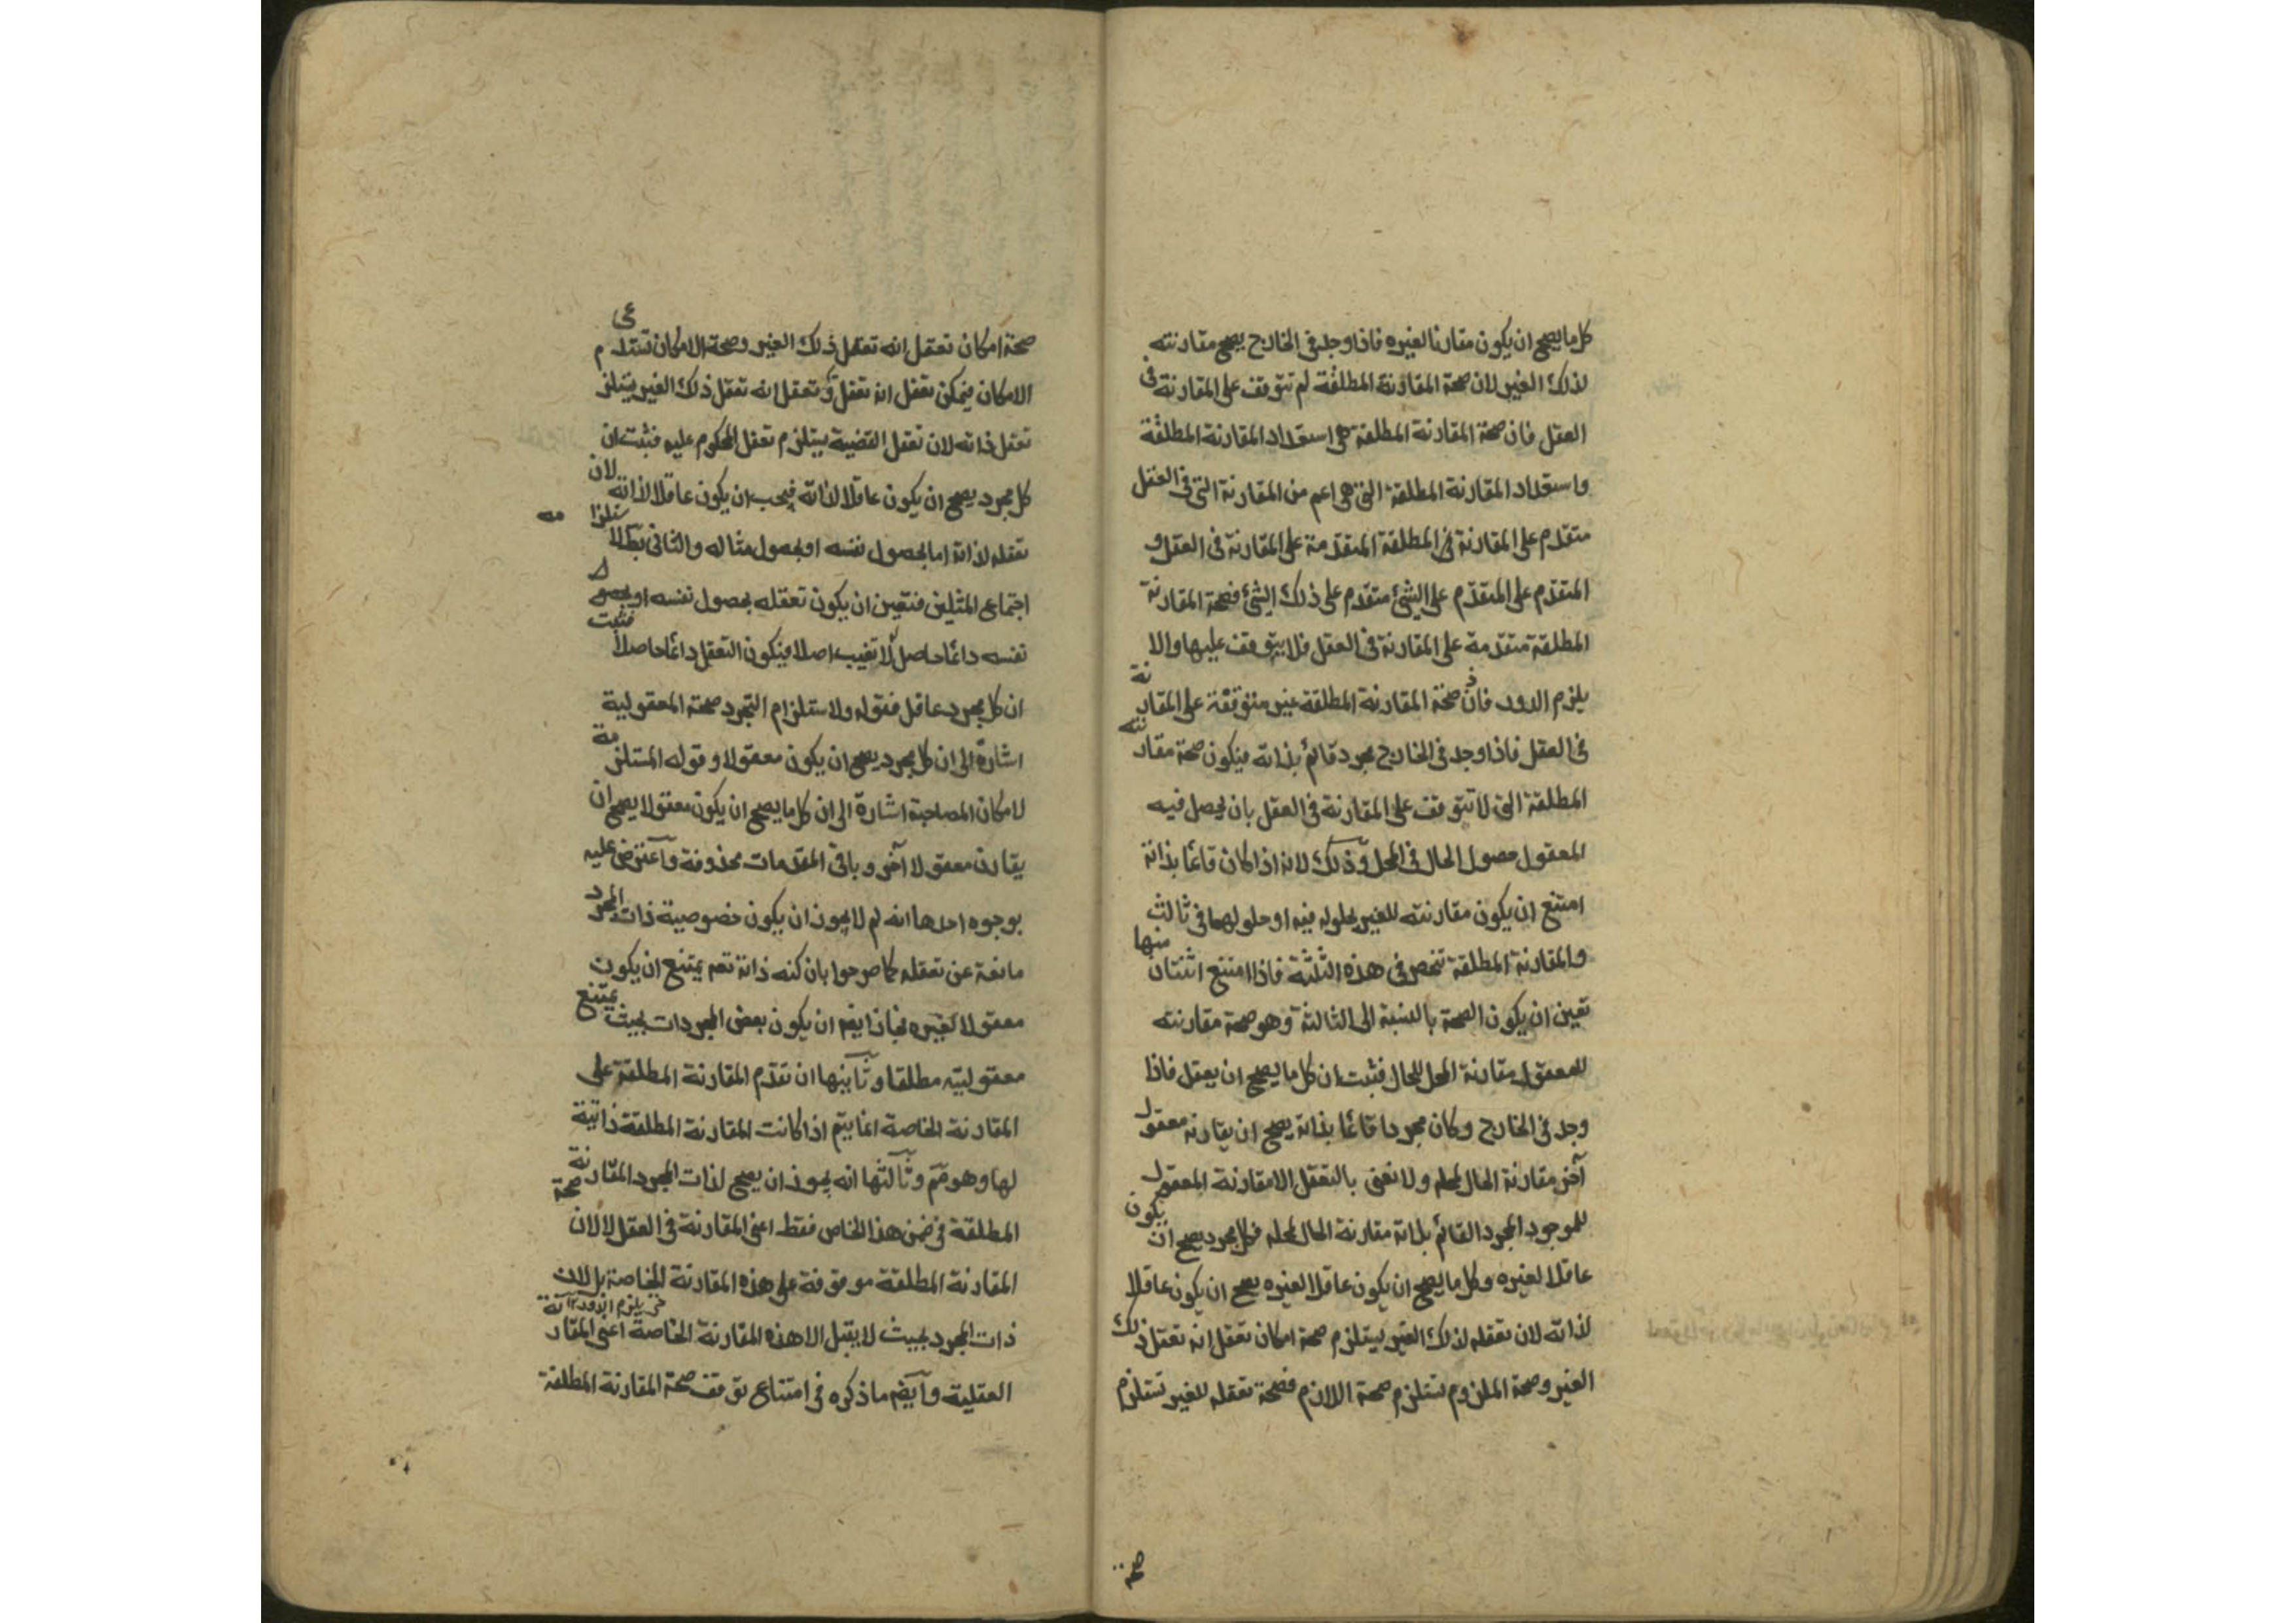 كل ما يصح ان يكون مقارنا لغيره فاذا وجد فى الخارج يصح مقارنته
لذلك الغير لان صحة المقارنة المطلقة لم تتوقف على المقارنة فى
العقل فان صحة المقارنة المطلقة هى استعداد المقارنة المطلقة
واستعداد المقارنة المطلقة التى هى اعم من المقارنة التى فى العقل
متقدم على المقارنة المطلقة المتقدمة على المقارنة فى العقل و
المتقدم على المتقدم على الشئ متقدم على ذلك الشئ فصحة المقارنة
المطلقة متقدمة على المقارنة فى العقل فلا يتوقف عليها والا
يلزم الدور فاذن صحة المقارنة المطلقة غير متوقفة على المقارنة
فى العقل فاذا وجد فى الخارج مجرد قائم بذاته فيكون صحة مقارنته
المطلقة التى لا تتوقف على المقارنة فى العقل بان يحصل فيه
المعقول حصول الحال فى المحل وذلك لانه اذا كان قائما بذاته
امتنع ان يكون مقارنته للغير بحلوله فيه او حلولهما فى ثالث
والمقارنة المطلقة تنحصر فى هذه الثلثة فاذا امتنع اثنتان منها
تعين ان يكون الصحة بالنسبة الى الثالثة وهو صحة مقارنته
للمعقول مقارنة المحل للحال فثبت ان كل ما يصح ان يعقل فاذا
وجد فى الخارج وكان مجردا قائما بذاته يصح ان يقارنه معقول
آخر مقارنة الحال لمحله ولا نعنى بالتعقل الا مقارنة المعقول
للموجود المجرد القائم بذاته مقارنة الحال لمحله فكل مجرد يصح ان يكون
عاقلا لغيره وكل ما يصح ان يكون عاقلا لغيره يصح ان يكون عاقلا
لذاته لان تعقله لذلك الغير يستلزم صحة امكان تعقل انه تعقل ذلك
الغير وصحة الملزوم تستلزم صحة اللازم فصحة تعقله للغير تستلزم
صحة
صحة امكان تعقل انه تعقل ذلك الغير وصحة الامكان تستدعى
الامكان فيمكن تعقل انه تعقل وتعقل انه تعقل ذلك الغير يستلزم
تعقل ذاته لان تعقل القضية يستلزم تعقل المحكوم عليه فثبت ان
كل مجرد يصح ان يكون عاقلا لذاته فيجب ان يكون عاقلا لذاته لان
تعقله لذاته اما بحصول نفسه او بحصول مثاله والثانى بط لاستلزامه
اجتماع المثلين فتعين ان يكون تعقله بحصول نفسه او بحصول
نفسه دائما حاصل لا تغيب اصلا فيكون التعقل دائما حاصلا فثبت
ان كل مجرد عاقل فقوله ولاستلزام التجرد صحة المعقولية
اشارة الى ان كل مجرد يصح ان يكون معقولا وقوله المستلزمة
لامكان المصاحبة اشارة الى ان كل ما يصح ان يكون معقولا يصح ان
يقارن معقولا آخر وباقى المقدمات محذوفة واعترض عليه
بوجوه احدها انه لم لا يجوز ان يكون خصوصية ذات المجرد
مانعة عن تعقله كما صرحوا بان كنه ذاته تعم يمتنع ان يكون
معقولا لغيره فجاز ايضم ان يكون بعض المجردات بحيث يمتنع
معقوليته مطلقا وثانيها ان تقدم المقارنة المطلقة على
المقارنة الخاصة انما يتم اذا كانت المقارنة المطلقة ذاتية
لها وهو مم وثالثها انه يجوز ان يصح لذات المجرد المقارنة
المطلقة فى ضمن هذا الخاص فقط اعنى المقارنة فى العقل لا لان صحة
المقارنة المطلقة موقوفة على هذه المقارنة الخاصة بل لان
حتى يلزم الدور
ذات المجرد بحيث لا يقبل الا هذه المقارنة الخاصة اعنى المقارنة
العقلية وايضم ما ذكره فى امتناع توقف صحة المقارنة المطلقة